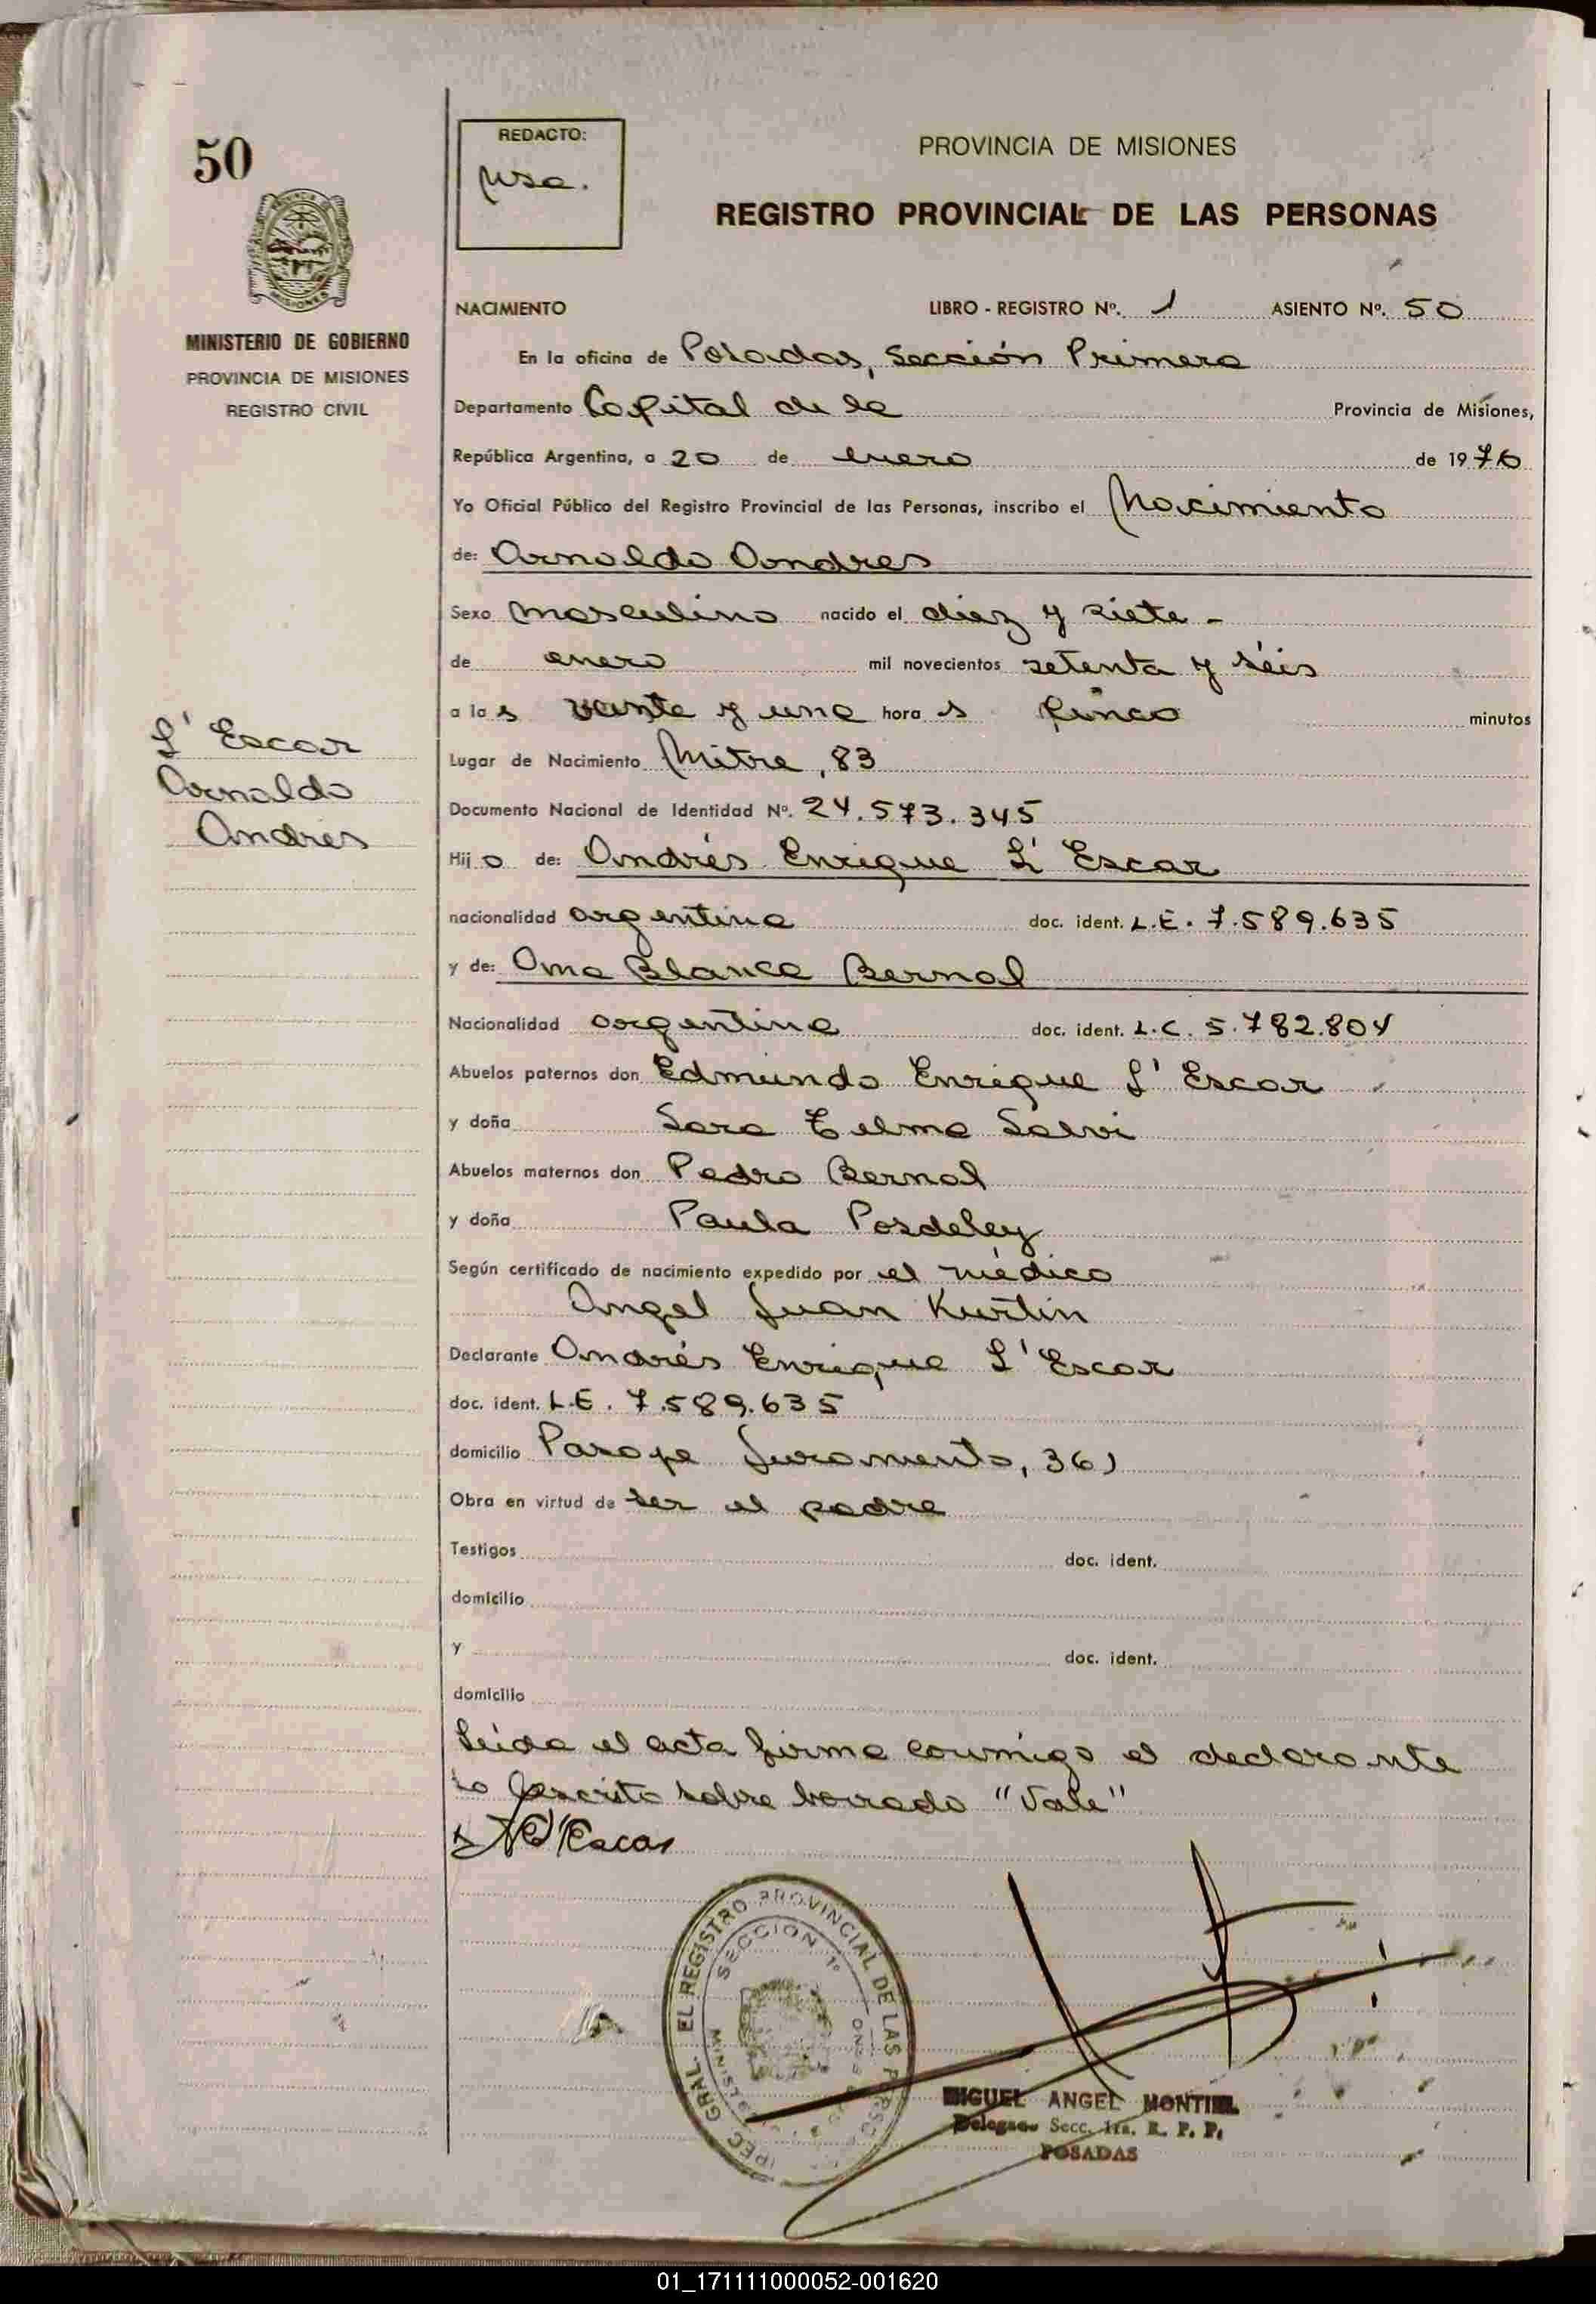 50
REDACTO:
PROVINCIA DE MISIONES
REGISTRO PROVINCIAL DE LAS PERSONAS
MISIONES
MINISTERIO DE GOBIERNO
PROVINCIA DE MISIONES
REGISTRO CIVIL
L' Escar
Arnaldo
Andres
NACIMIENTO LIBRO - REGISTRO Nº. 1 ASIENTO Nº. 50
En la oficina de Posadas, Sección Primera
Departamento Capital de la Provincia de Misiones,
República Argentina, a 20 de enero de 1976
Yo Oficial Público del Registro Provincial de las Personas, inscribo el Nacimiento
de: Arnoldo Andres
Sexo masculino nacido el diez y siete -
de enero mil novecientos setenta y séis
a las veinte y una horas cinco minutos
Lugar de Nacimiento Mitre, 83
Documento Nacional de Identidad Nº. 24.573.345
Hijo de: Andrés Enrique L' Escar
nacionalidad argentina doc. ident. L.E. 7.589.635
y de: Ana Blanca Bernal
Nacionalidad argentina doc. ident. L.C. 5.782.804
Abuelos paternos don Edmundo Enrique L' Escar
y doña Sara Telma Salvi
Abuelos maternos don Pedro Bernal
y doña Paula Posdeley
Según certificado de nacimiento expedido por el médico
Angel Juan Kurtin
Declarante Andrés Enrique L' Escar
doc. ident. L.E. 7.589.635
domicilio Pasaje Juramento, 361
Obra en virtud de ser el padre
Testigos doc. ident.
domicilio
y doc. ident.
domicilio
Leida el acta firma conmigo el declarante
Lo escrito sobre borrado "Vale"
L'Escar
GRAL. EL REGISTRO PROVINCIAL DE LAS
SECCION 1º
MIGUEL ANGEL MONTIEL
Delegado Secc. 1ra. R. P. P.
POSADAS
01_171111000052-001620